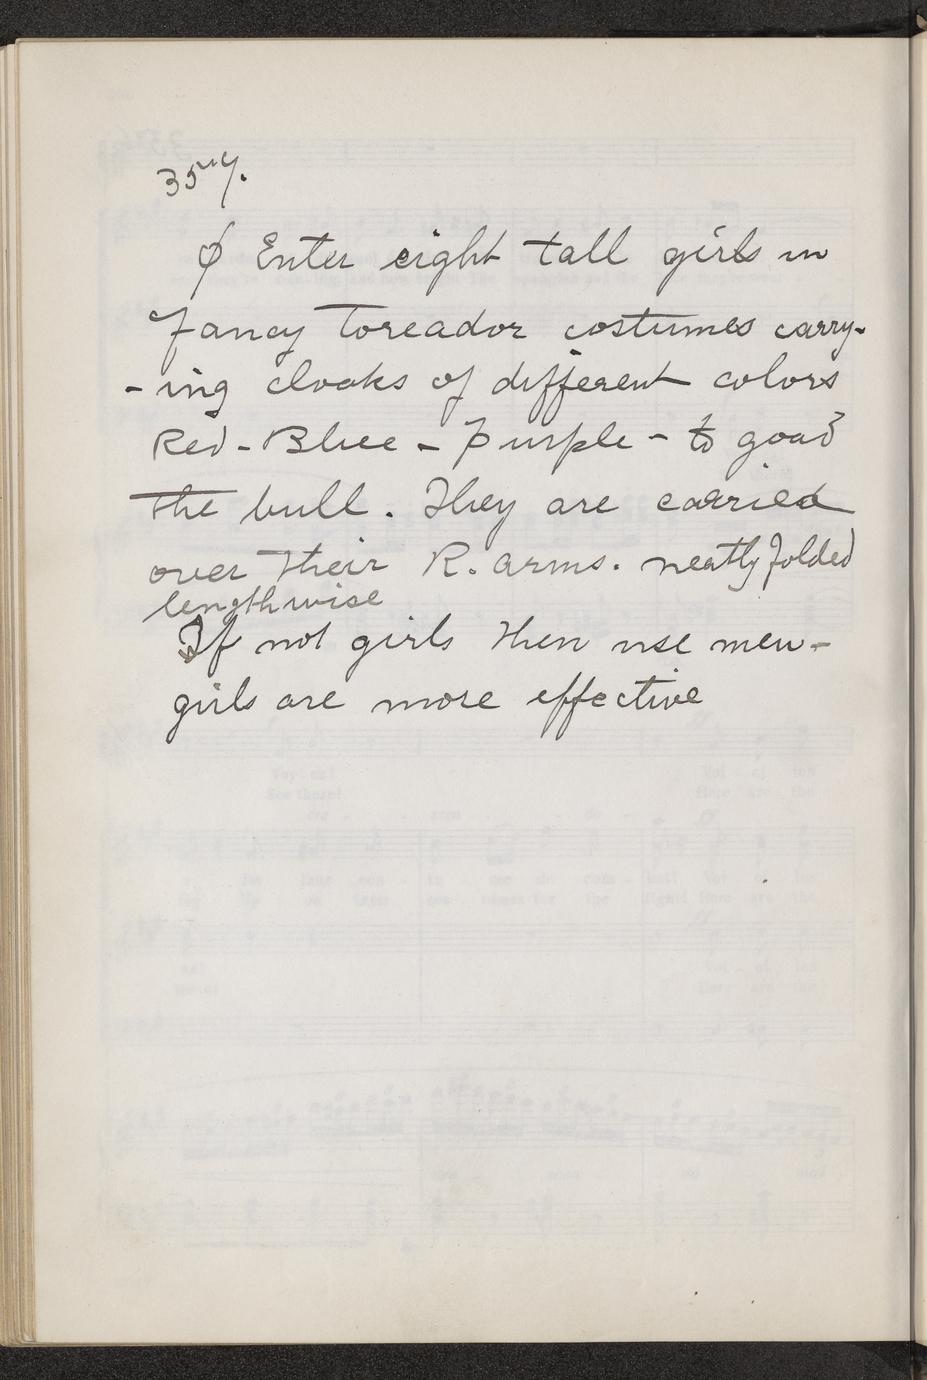 ϕ Enter eight tall girls in
fancy Toreador costumes carry-
- ing cloaks of different colors
Red - Blue - Purple - to goad
the bull. They are carried
over their R. arms. neatly folded
lengthwise
If not girls then use men -
girls are more effective